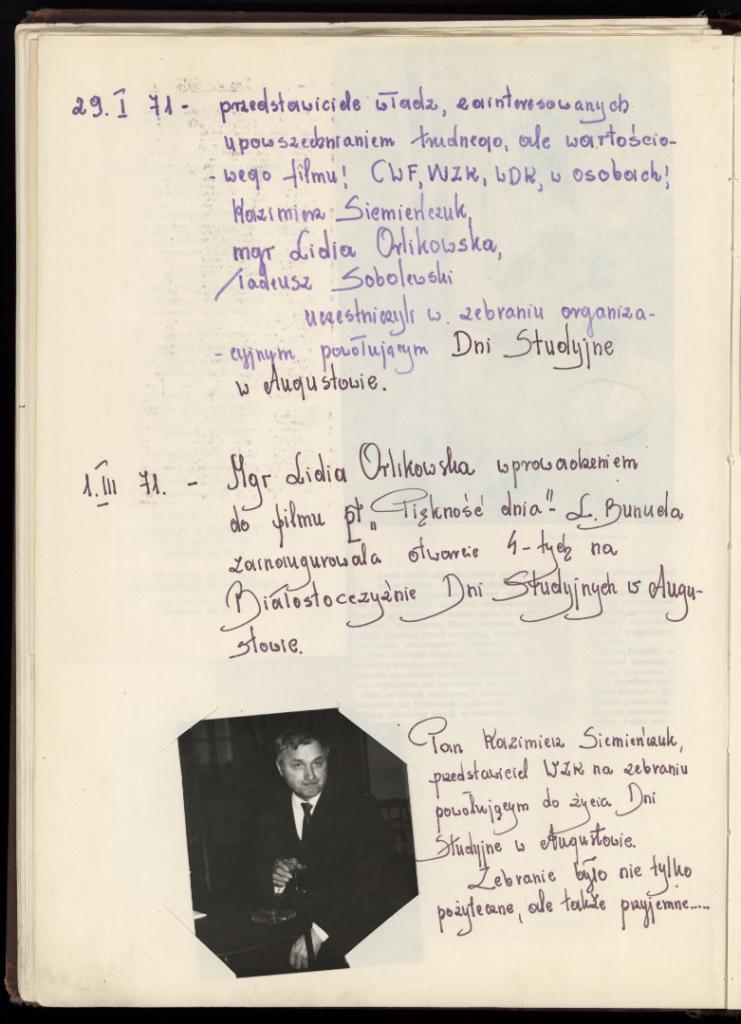 29. I 71 - przedstawiciele władz, zainteresowanych
upowszechnianiem trudnego, ale wartościo-
- wego filmu! CWF, WZK, WDK, w osobach!
Kazimierz Siemieńczuk,
mgr Lidia Orlikowska,
Tadeusz Sobolewski
uczestniczyli w. zebraniu organiza-
- cyjnym powołującym Dni Studyjne
w Augustowie.
1. III 71. - Mgr Lidia Orlikowska wprowadzeniem
do filmu pt „Piękność dnia" - L. Bunuela
zainaugurowała otwarcie 4-tych na
Białostocczyźnie Dni Studyjnych w Augu-
stowie.
Pan Kazimierz Siemieńczuk,
przedstawiciel WZK na zebraniu
powołującym do życia Dni
Studyjne w Augustowie.
Zebranie było nie tylko
pożyteczne, ale także przyjemne.....